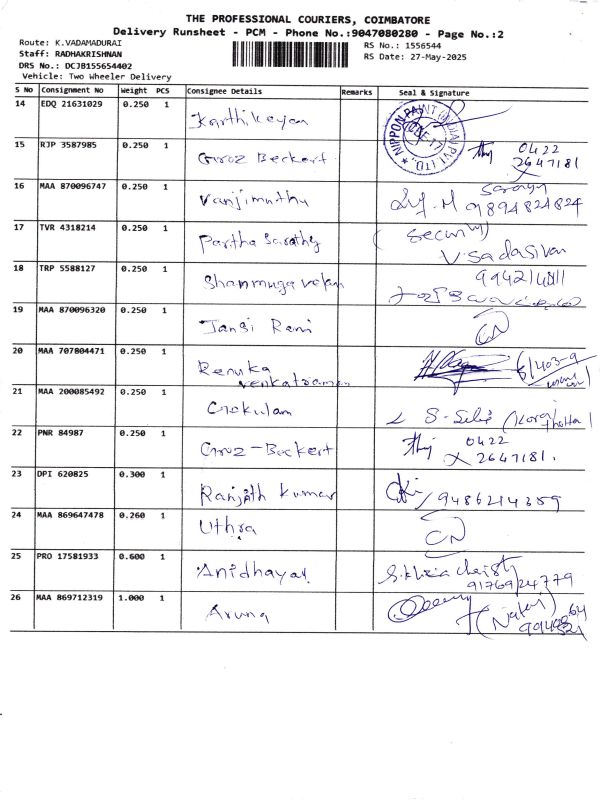 THE PROFESSIONAL COURIERS, COIMBATORE
Delivery Runsheet - PCM - Phone No.:9047080280 - Page No.:2
Route: K.VADAMADURAI
Staff: RADHAKRISHNAN
DRS No.: DCJB155654402
Vehicle: Two Wheeler Delivery
RS No.: 1556544
RS Date: 27-May-2025
S No Consignment No Weight PCS Consignee Details Remarks Seal & Signature
14 EDQ 21631029 0.250 1 Karthikeyan
NIPPON PAINT (INDIA) PVT. LTD.
15 RJP 3587985 0.250 1 Groz Beckert 0422
2647181
16 MAA 870096747 0.250 1 Vanjimuthu Saranya
9894824824
17 TVR 4318214 0.250 1 Partha Sarathy (Security)
V. Sadasivan
18 TRP 5588127 0.250 1 Shanmuga velan
19 MAA 870096320 0.250 1 Jansi Rani CN
20 MAA 707804471 0.250 1 Renuka
Venkatraman
21 MAA 200085492 0.250 1 Gokulam
22 PNR 84987 0.250 1 Groz-Beckert 0422
2647181.
23 DPI 620825 0.300 1 Ranjith Kumar 9486214359
24 MAA 869647478 0.260 1 Uthra CN
25 PRO 17581933 0.600 1 Anidhayal
9176924779
26 MAA 869712319 1.000 1 Aruna